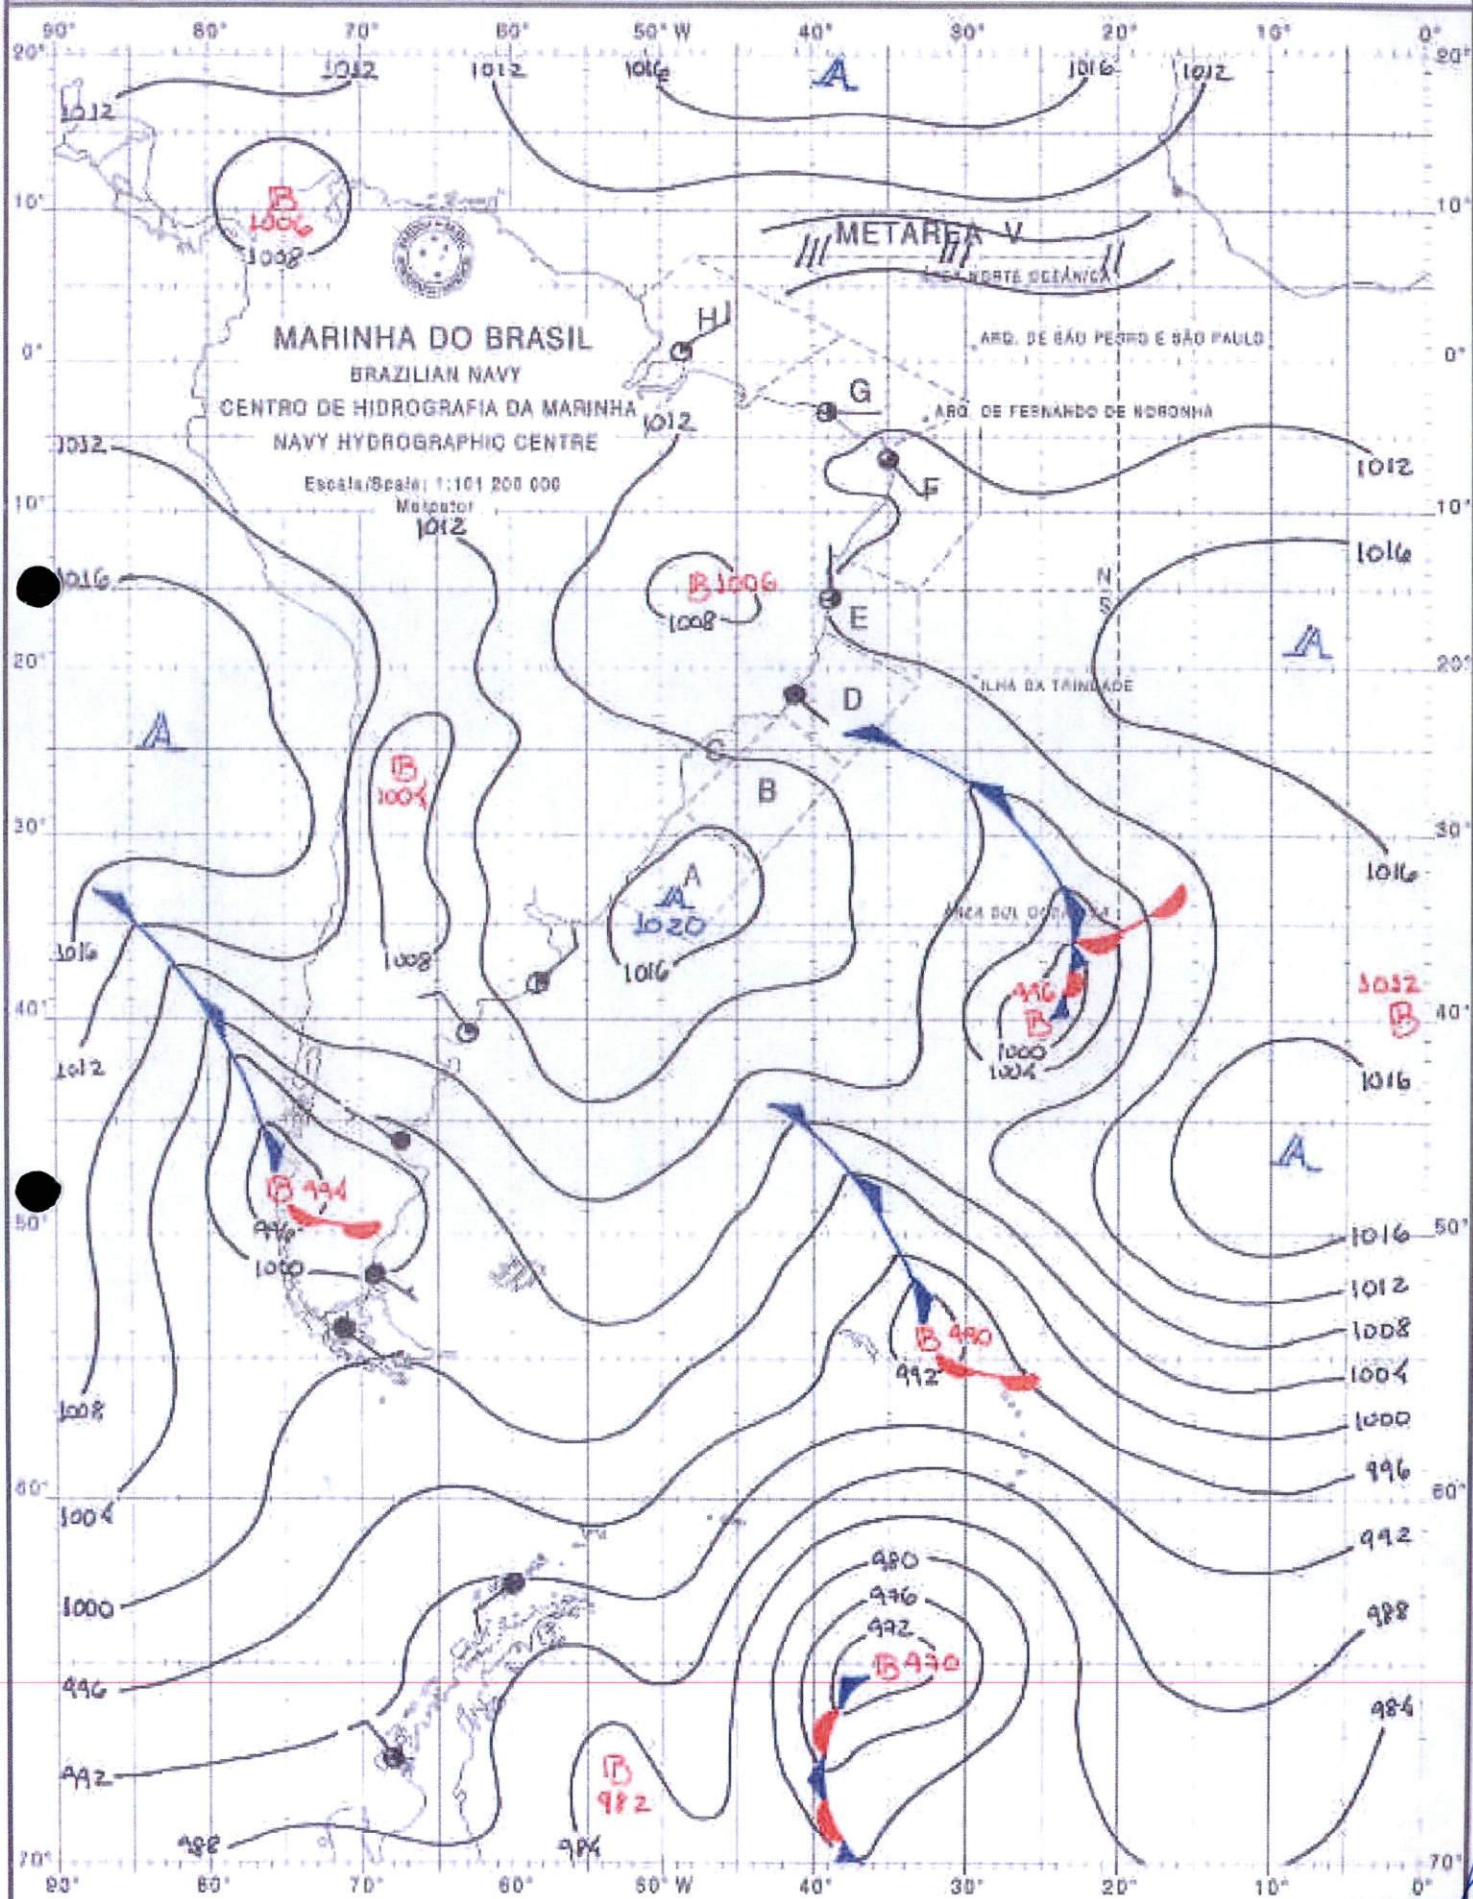 90° 80° 70° 60° 50° W 40° 30° 20° 10° 0°
20° 20°
1012 1012 1016 A 1016 1012
1012
B
1006
1008
10° 10°
METAREA V
ÁREA NORTE OCEÂNICA
H
MARINHA DO BRASIL
BRAZILIAN NAVY
CENTRO DE HIDROGRAFIA DA MARINHA
NAVY HYDROGRAPHIC CENTRE
Escala/Scale: 1:101 200 000
Mercator
ARQ. DE SÃO PEDRO E SÃO PAULO
0° 0°
G
ARQ. DE FERNANDO DE NORONHA
1012
1012
1012
F
10° 10°
1012
1016
1016
B 1006
1008
N
S
E
A
20° 20°
ILHA DA TRINDADE
D
A
C
B
1004
B
30° 30°
1016
A
A
1020
ÁREA SUL OCEÂNICA
1016
1008
1016
996
B
1012
B
40° 40°
1000
1004
1012
1016
A
B 994
996
1000
50° 50°
1016
1012
1008
1004
1000
996
B 990
992
1008
60° 60°
1004
992
980
976
972
B 970
1000
988
996
984
992
B
982
988
984
70° 70°
90° 80° 70° 60° 50° W 40° 30° 20° 10° 0°